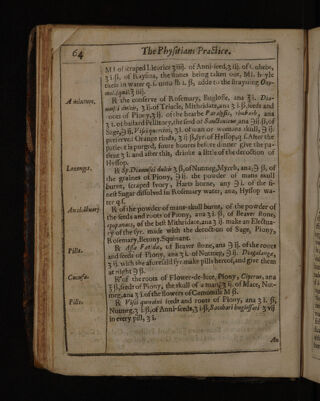 64
The Physitians Practice.
M i. of scraped Licorice ʒ iiij. of Anni-seed, ʒ iij. of Cubebs,
ʒ i.ß. of Raysins, the stones being taken out, M i. boyle
them in water q.s. unto lb i. ß, adde to the strayning Oxy-
mel. squil. ʒ iiij.
A mixture.
R the conserve of Rosemary, Buglosse, ana ʒ i. Dia-
musci dulcis, ʒ ii. of Triacle, Mithridate, ana ʒ i. ß, seeds and
roots of Piony, ʒ ij. of the hearbe Paralysis, rhubarb, ana
ʒ i. of bastard Pellitory, the seed of ana ʒ ii ß, of
Sage, Visciquercini, ʒ i. of man or womans skull,
preserved Orange rinds, ʒ ii. ß, syr. of Hyssop, After the
patient is purged, foure houres before dinner give the pa-
tient ʒ i. and after this, drinke a little of the decoction of
Hyssop.
Lozenge.
R Sp. Diamusci dulcis ʒ ß, of Nutmeg, Myrrh, ana, ß,
of the graines of Piony, the powder of mans skull
burne, scraped Ivory, Harts horne, any of the fi-
nest Sugar dissolved in Rosemary water, ana, Hyssop wa-
ter q.s.
An electuary.
R of the powder of mans-skull burne, of the powder of
the seeds and roots of Piony, ana ʒ i. ß, of Beaver stone,
of the best Mithridate, ana ʒ ij. make an Electua-
ry of the syr. made with the decoction of Sage, Piony,
Rosemary, Betony, Squinant.
Pills.
R Assa Fœtida, of Beaver stone, ana of the roots
and seeds of Piony, ana ʒ i. of Nutmeg, Diagalanga,
ʒ ij. with the aforesaid syr. make pills hereof, and give them
at night ß.
Cucufa.
R of the roots of Flower-de-luce, Piony, Ciperus, ana
ʒ ß, seeds of Piony, the skull of a man, of Mace, Nut-
meg, ana ʒ i. of the flowers of Camomill M ß.
Pills.
R Visci quercini seeds and roots of Piony, ana ʒ i. ß,
Nutmeg, ʒ i. ß, of Anni-seeds, ʒ i. ß, Sacchari ʒ vij
in every pill, ʒ i.
An